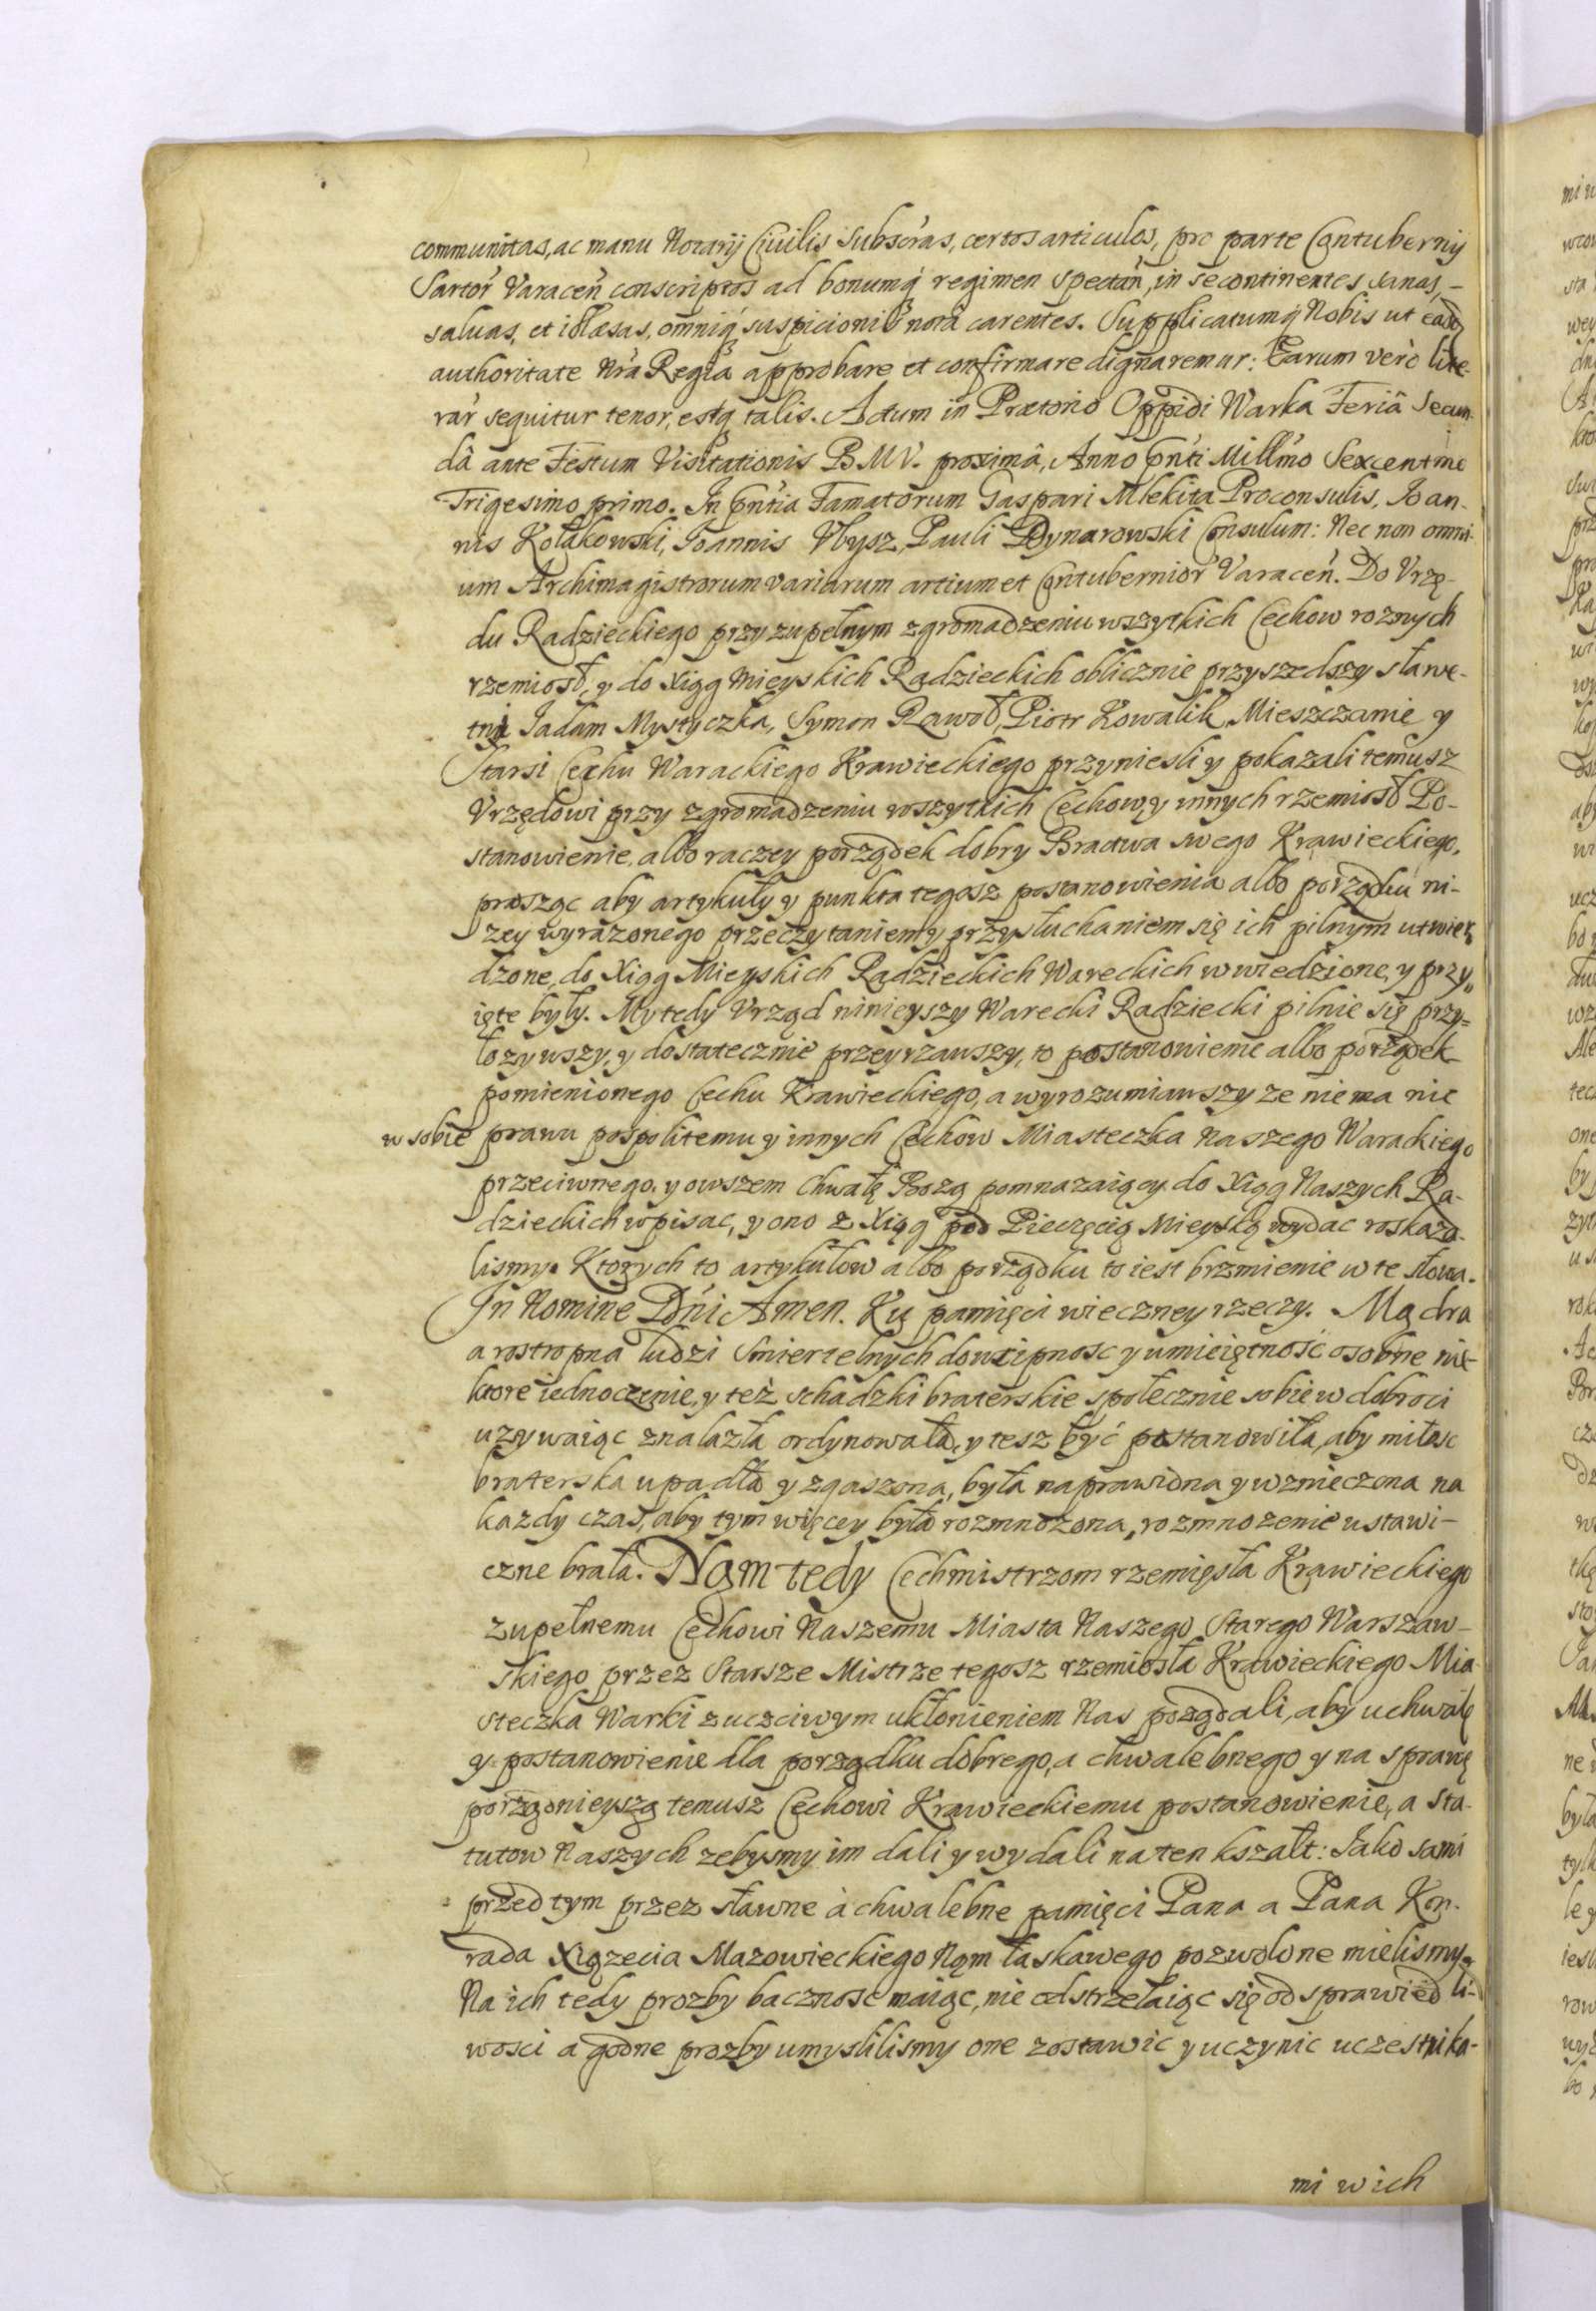 communitas, ac manu Notarij Ciuilis Subscr̃as, certos articulos, pro parte Contubernij
Sartor̃ Varaceñ conscriptos ad bonumq́ regimen spectañ, in se continentes sanas,
saluas, et illæsas, omniq́ suspicionis notâ carentes. Supplicatumq́ Nobis ut easd̃
authoritate Nr̃a Regia approbare et confirmare dignaremur: Earum verò lite-
rar̃ sequitur tenor, estq́ talis. Actum in Prætorio Oppidi Warka Feriâ Secun-
dâ ante Festum Visitationis B.M.V. proximâ, Anno Pñti Millm̃o Sexcentmo
Trigesimo primo. In Pñtia Famatorum Gaspari Mlekita Proconsulis, Ioan-
nis Kołakowski, Joannis Ubysz, Pauli Dynarowski Consulum: Nec non omni-
um Archimagistrorum variarum artium et Contubernior̃ Varaceñ. Do Vrzę-
du Radzieckiego przy zupełnym zgromadzeniu wszytkich Cechow roznych
rzemiosł, y do Xiąg Mieyskich Radzieckich oblicznie przyszedszy sławe-
tni Jadam Mystyczka, Symon Rawoł, Piotr Kowalik Mieszczanie y
Starsi Cechu Warackiego Krawieckiego przyniesli y pokazali temusz
Vrzędowi przy zgromadzeniu wszytkich Cechow, y innych rzemiosł Po-
stanowienie, albo raczey porządek dobry Bractwa swego Krawieckiego,
prosząc aby artykuły y punkta tegosz postanowienia albo porządku ni-
zey wyrazonego przeczytaniem y przysłuchaniem się ich pilnym utwier-
dzone, do Xiąg Mieyskich Radzieckich Wareckich wwiedzione, y przy-
ięte były. My tedy Vrząd ninieyszy Warecki Radziecki pilnie się przy-
łozywszy, y dostatecznie przeyrzawszy, to postanowienie albo porządek
pomienionego Cechu Krawieckiego, a wyrozumiawszy ze niema nic
w sobie prawu pospolitemu y innych Cechow Miasteczka Naszego Warackiego
przeciwnego, y owszem Chwałę Bozą pomnazaiący, do Xiąg Naszych Ra-
dzieckich wpisac, y ono z Xiąg pod Pieczęcią Mieyską wydac roskaza-
lismy. Ktorych to artykułow albo porządku to iest brzmienie w te słowa.
In Nomine Dñi Amen. Ku pamięci wieczney rzeczy. Mądra
a rostropna ludzi Smiertelnych dowcipnosc y umieiętność osobne nie-
ktore iednoczenie, y też schadzki braterskie społecznie sobie w dobroci
uzywaiąc znalazła ordynowała, y tesz być postanowiła, aby miłosc
braterska upadła y zgaszona, była naprawiona y wznieczona na
kazdy czas, aby tym więcey była rozmnozona, rozmnozenie ustawi-
czne brała. Nam tedy Cechmistrzom rzemięsła Krawieckiego
zupełnemu Cechowi Naszemu Miasta Naszego Starego Warszaw-
skiego przez Starsze Mistrze tegosz rzemiosła Krawieckiego Mia-
steczka Warki z uczciwym ukłonieniem Nas poządali, aby uchwałę
y postanowienie dla porządku dobrego, a chwalebnego y na sprawę
porządnieyszą temusz Cechowi Krawieckiemu postanowienie, a sta-
tutow Naszych zebysmy im dali y wydali na ten kszałt: Jako sami
przed tym przez sławne à chwalebne pamięci Pana a Pana Kon-
rada Xiązecia Mazowieckiego Nąm łaskawego pozwolone mielismy.
Na ich tedy prozby bacznosc maiąc, nie odstrzelaiąc się od sprawiedli-
wosci a godne prozby umyslilismy one zostawic y uczynic uczestnika-
mi wich